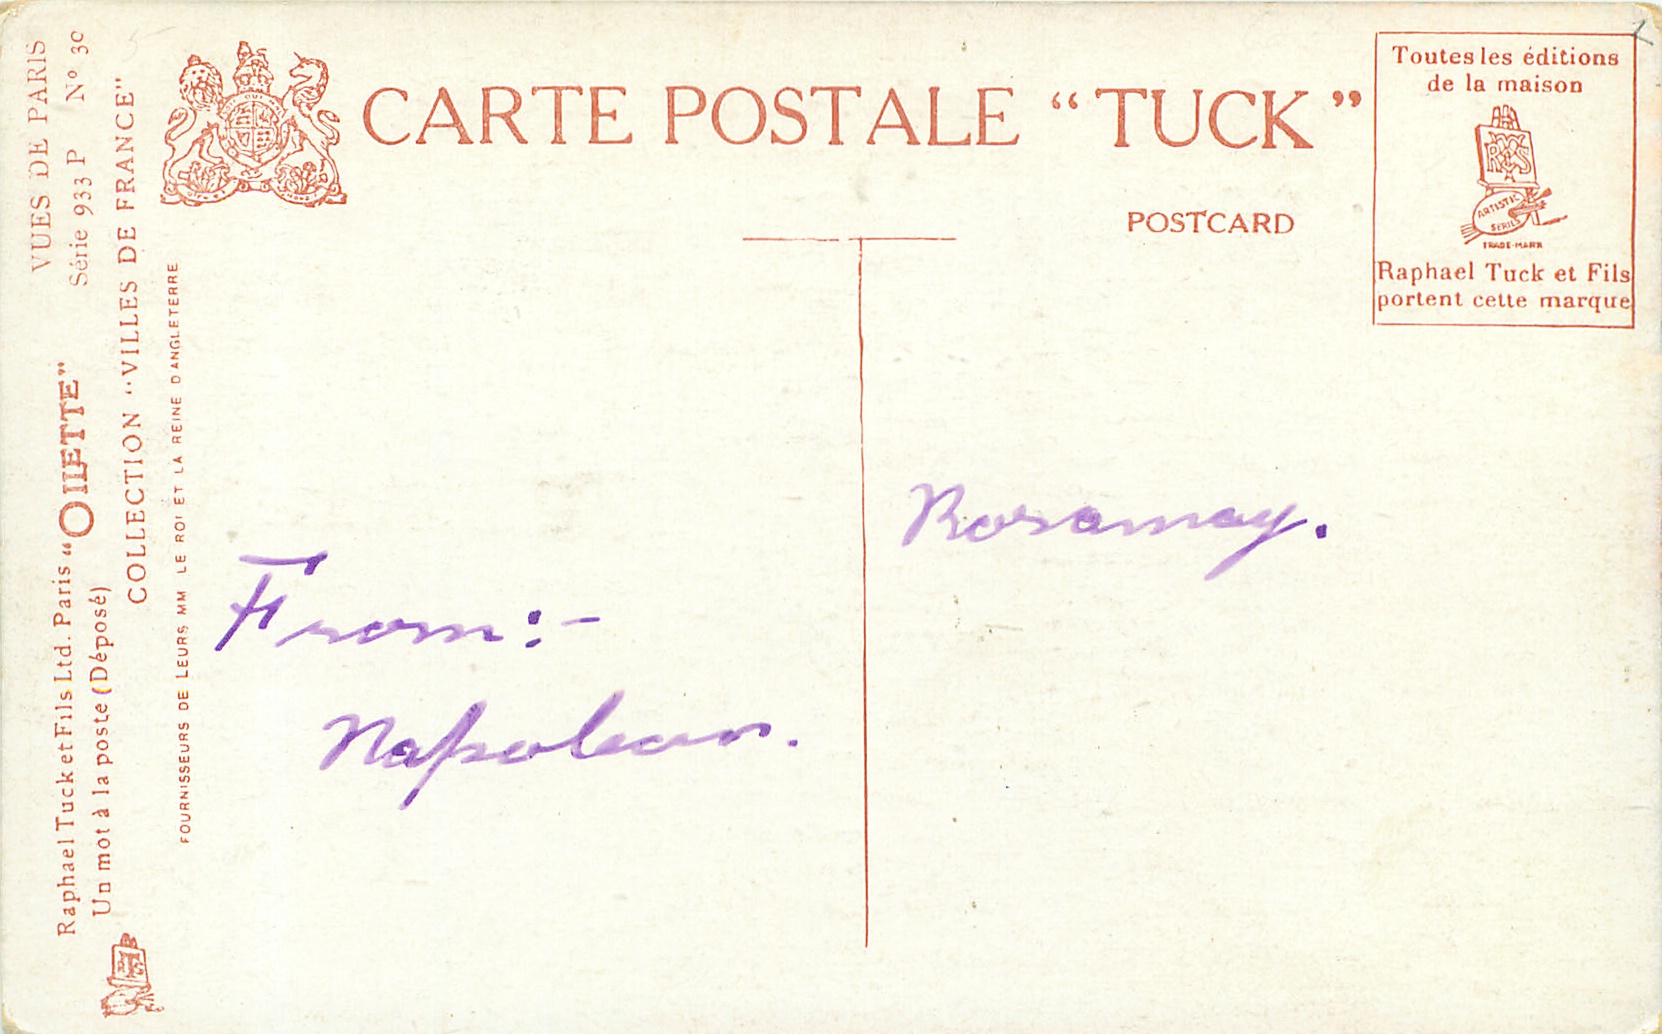 VUES DE PARIS
Série 933 P N° 30
Raphael Tuck et Fils Ltd. Paris "OILETTE"
Un mot à la poste (Déposé)
COLLECTION "VILLES DE FRANCE"
FOURNISSEURS DE LEURS MM LE ROI ET LA REINE D'ANGLETERRE
CARTE POSTALE "TUCK"
POSTCARD
Toutes les éditions
de la maison
ARTISTIC
SERIES
TRADE-MARK
Raphael Tuck et Fils
portent cette marque
From:-
Napoleon.
Rosamay.